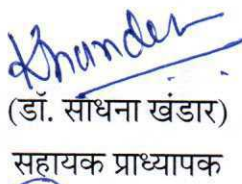 Khander
(डॉ. साधना खंडार)
सहायक प्राध्यापक